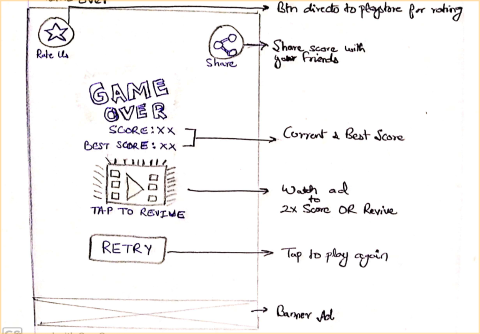 OVER
Btn directs to playstore for rating
Rate Us
Share
Share score with
your friends
GAME
OVER
SCORE: XX
BEST SCORE: XX
Current & Best Score
TAP TO REVIVE
Watch ad
to
2x Score OR Revive
RETRY
Tap to play again
Banner Ad